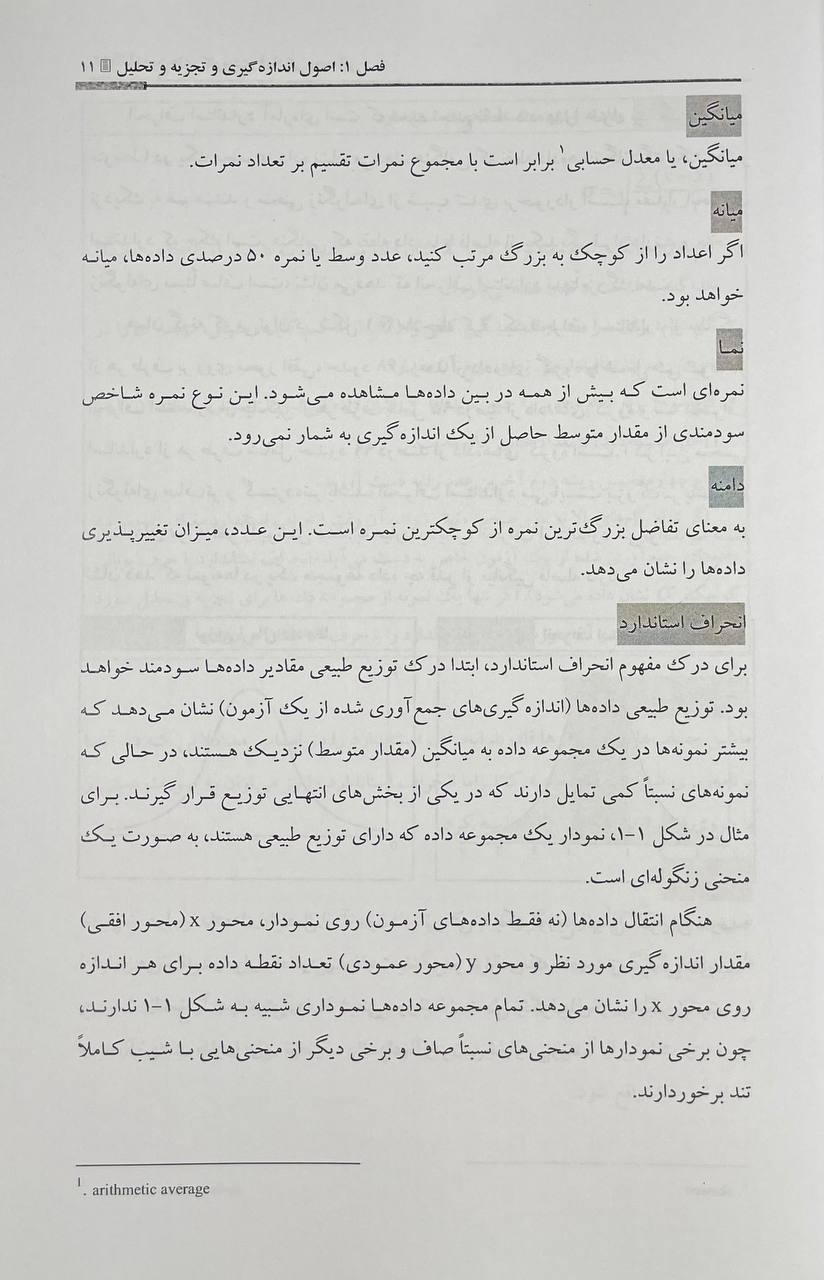 فصل ۱: اصول اندازه‌گیری و تجزیه و تحلیل ۱۱
میانگین
میانگین، یا معدل حسابی۱ برابر است با مجموع نمرات تقسیم بر تعداد نمرات.
میانه
اگر اعداد را از کوچک به بزرگ مرتب کنید، عدد وسط یا نمره ۵۰ درصدی داده‌ها، میانه
خواهد بود.
نما
نمره‌ای است که بیش از همه در بین داده‌ها مشاهده می‌شود. این نوع نمره شاخص
سودمندی از مقدار متوسط حاصل از یک اندازه‌گیری به شمار نمی‌رود.
دامنه
به معنای تفاضل بزرگ‌ترین نمره از کوچکترین نمره است. این عدد، میزان تغییرپذیری
داده‌ها را نشان می‌دهد.
انحراف استاندارد
برای درک مفهوم انحراف استاندارد، ابتدا درک توزیع طبیعی مقادیر داده‌ها سودمند خواهد
بود. توزیع طبیعی داده‌ها (اندازه‌گیری‌های جمع‌آوری شده از یک آزمون) نشان می‌دهد که
بیشتر نمونه‌ها در یک مجموعه داده به میانگین (مقدار متوسط) نزدیک هستند، در حالی که
نمونه‌های نسبتاً کمی تمایل دارند که در یکی از بخش‌های انتهایی توزیع قرار گیرند. برای
مثال در شکل ۱-۱، نمودار یک مجموعه داده که دارای توزیع طبیعی هستند، به صورت یک
منحنی زنگوله‌ای است.
هنگام انتقال داده‌ها (نه فقط داده‌های آزمون) روی نمودار، محور x (محور افقی)
مقدار اندازه‌گیری مورد نظر و محور y (محور عمودی) تعداد نقطه داده برای هر اندازه
روی محور x را نشان می‌دهد. تمام مجموعه داده‌ها نموداری شبیه به شکل ۱-۱ ندارند،
چون برخی نمودارها از منحنی‌های نسبتاً صاف و برخی دیگر از منحنی‌هایی با شیب کاملاً
تند برخوردارند.
1. arithmetic average